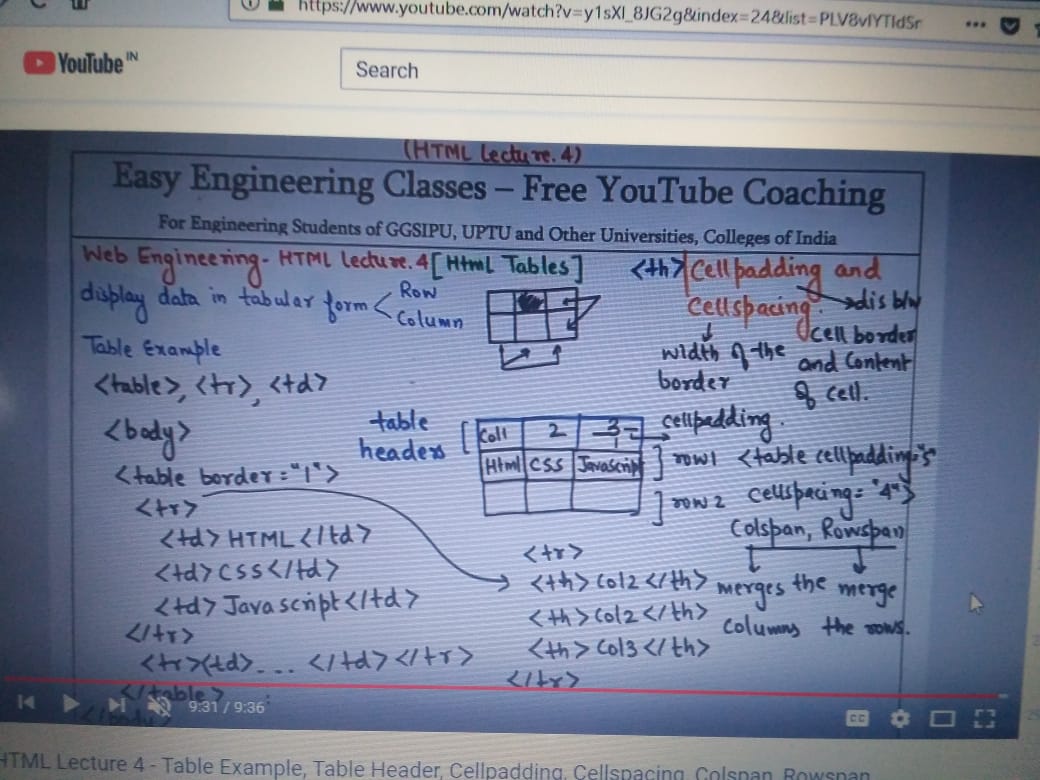 https://www.youtube.com/watch?v=y1sXl_8JG2g&index=24&list=PLV8vIYTIdSr
YouTube IN
Search
(HTML Lecture. 4)
Easy Engineering Classes – Free YouTube Coaching
For Engineering Students of GGSIPU, UPTU and Other Universities, Colleges of India
Web Engineering- HTML Lecture. 4 [Html Tables]
display data in tabular form < Row
Column
Table Example
<table>, <tr>, <td>
<body>
<table border="1">
<tr>
<td> HTML </td>
<td> CSS </td>
<td> Javascript </td>
</tr>
<tr><td>... </td> </tr>
</table>
table
headers
Col1 2 3
Html CSS Javascript
row1
row 2
<tr>
<th> Col2 </th>
<th> Col2 </th>
<th> Col3 </th>
</tr>
<th> Cellpadding and
Cellspacing. dis b/w
cell border
and Content
of cell.
width of the
border
cellpadding.
<table cellpadding="5"
cellspacing="4">
Colspan, Rowspan
merges the merge
Columns the rows.
9:31 / 9:36
CC
HTML Lecture 4 - Table Example, Table Header, Cellpadding, Cellspacing, Colspan, Rowspan